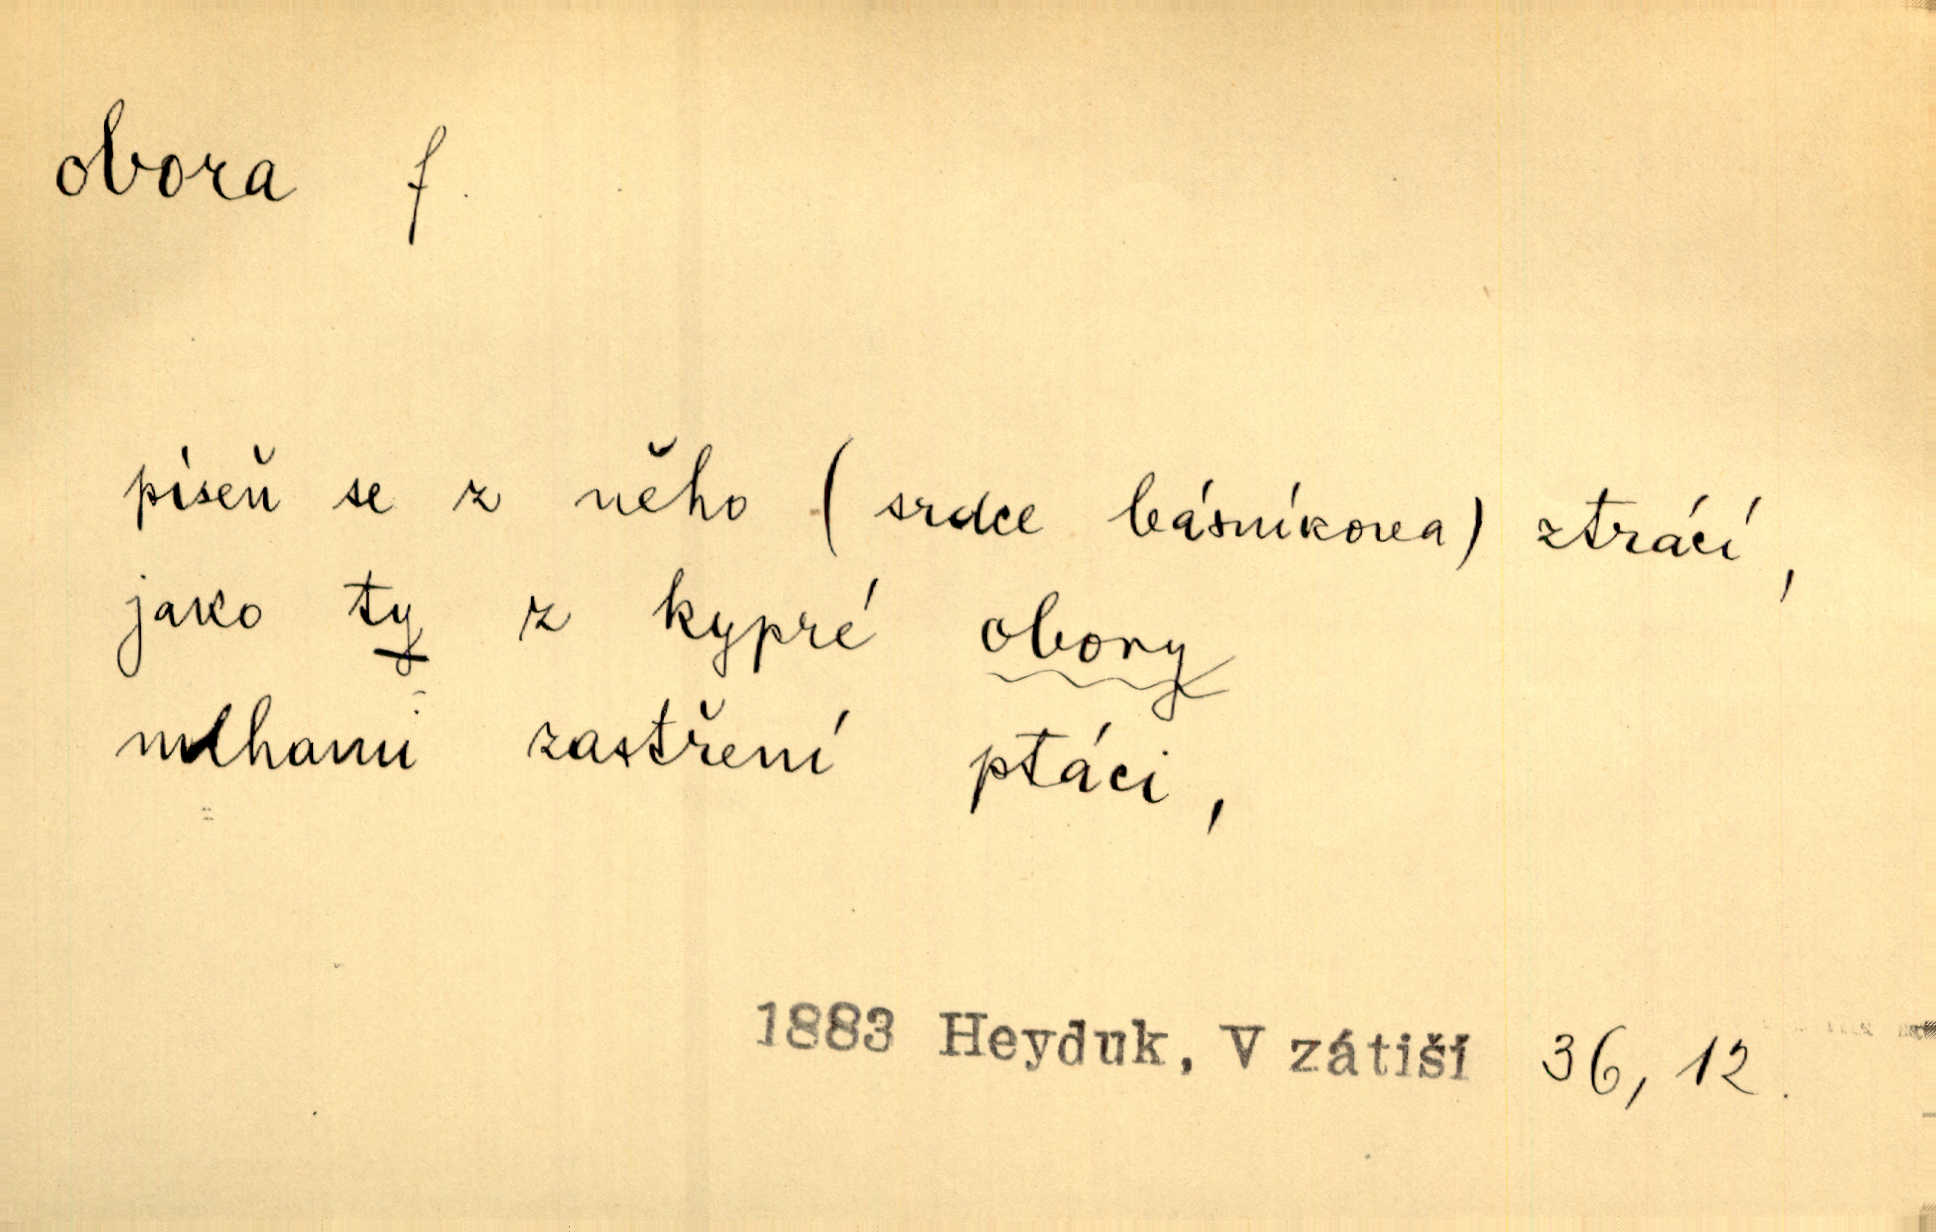 obora f.
píseň se z něho (srdce básníkova) ztrácí,
jako ty z kypré obory
mlhami zastření ptáci,
1883 Heyduk, V zátiší 36, 12.